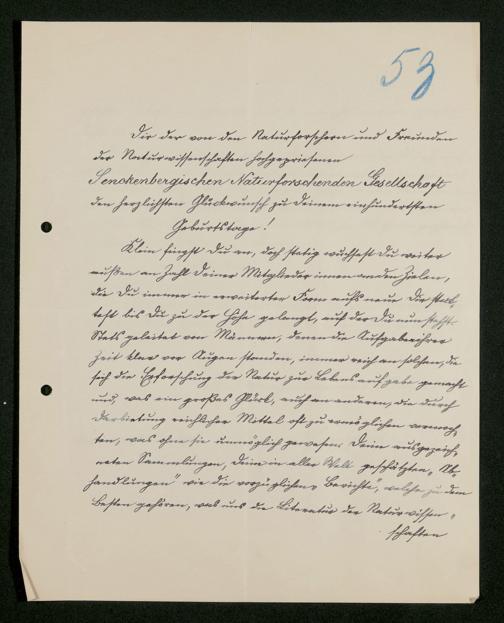 53
Dir der von den Naturforschern und Freunden
der Naturwissenschaften hochgepriesenen
Senckenbergischen Naturforschenden Gesellschaft
den herzlichsten Glückwunsch zu Deinem einhundertsten
Geburtstage!
Klein fingst Du an, doch stetig wuchsest Du weiter
außen an Zahl Deiner Mitglieder innen an den Zielen,
die Du immer in erweiterter Form aufs neue Dir
bis Du zu der Höhe gelangt, auf der Du nun stehst.
Stets geleitet von Männern, denen die Aufgabe ihrer
Zeit klar vor Augen standen, immer reich an solchen, die
sich die Erforschung der Natur zur Lebensaufgabe gemacht
und, was ein großes Glück, auch an anderen, die durch
Darbietung reichlicher Mittel oft zu ermöglichen vermoch,
ten, was ohne sie unmöglich gewesen. Deine ausgezeich,
neten Sammlungen, Deine in aller Welt geschätzten „Ab,
handlungen" wie die vorzüglichen „Berichte", welche zu dem
Besten gehören, was uns die Literatur der Naturwissen„
schaften